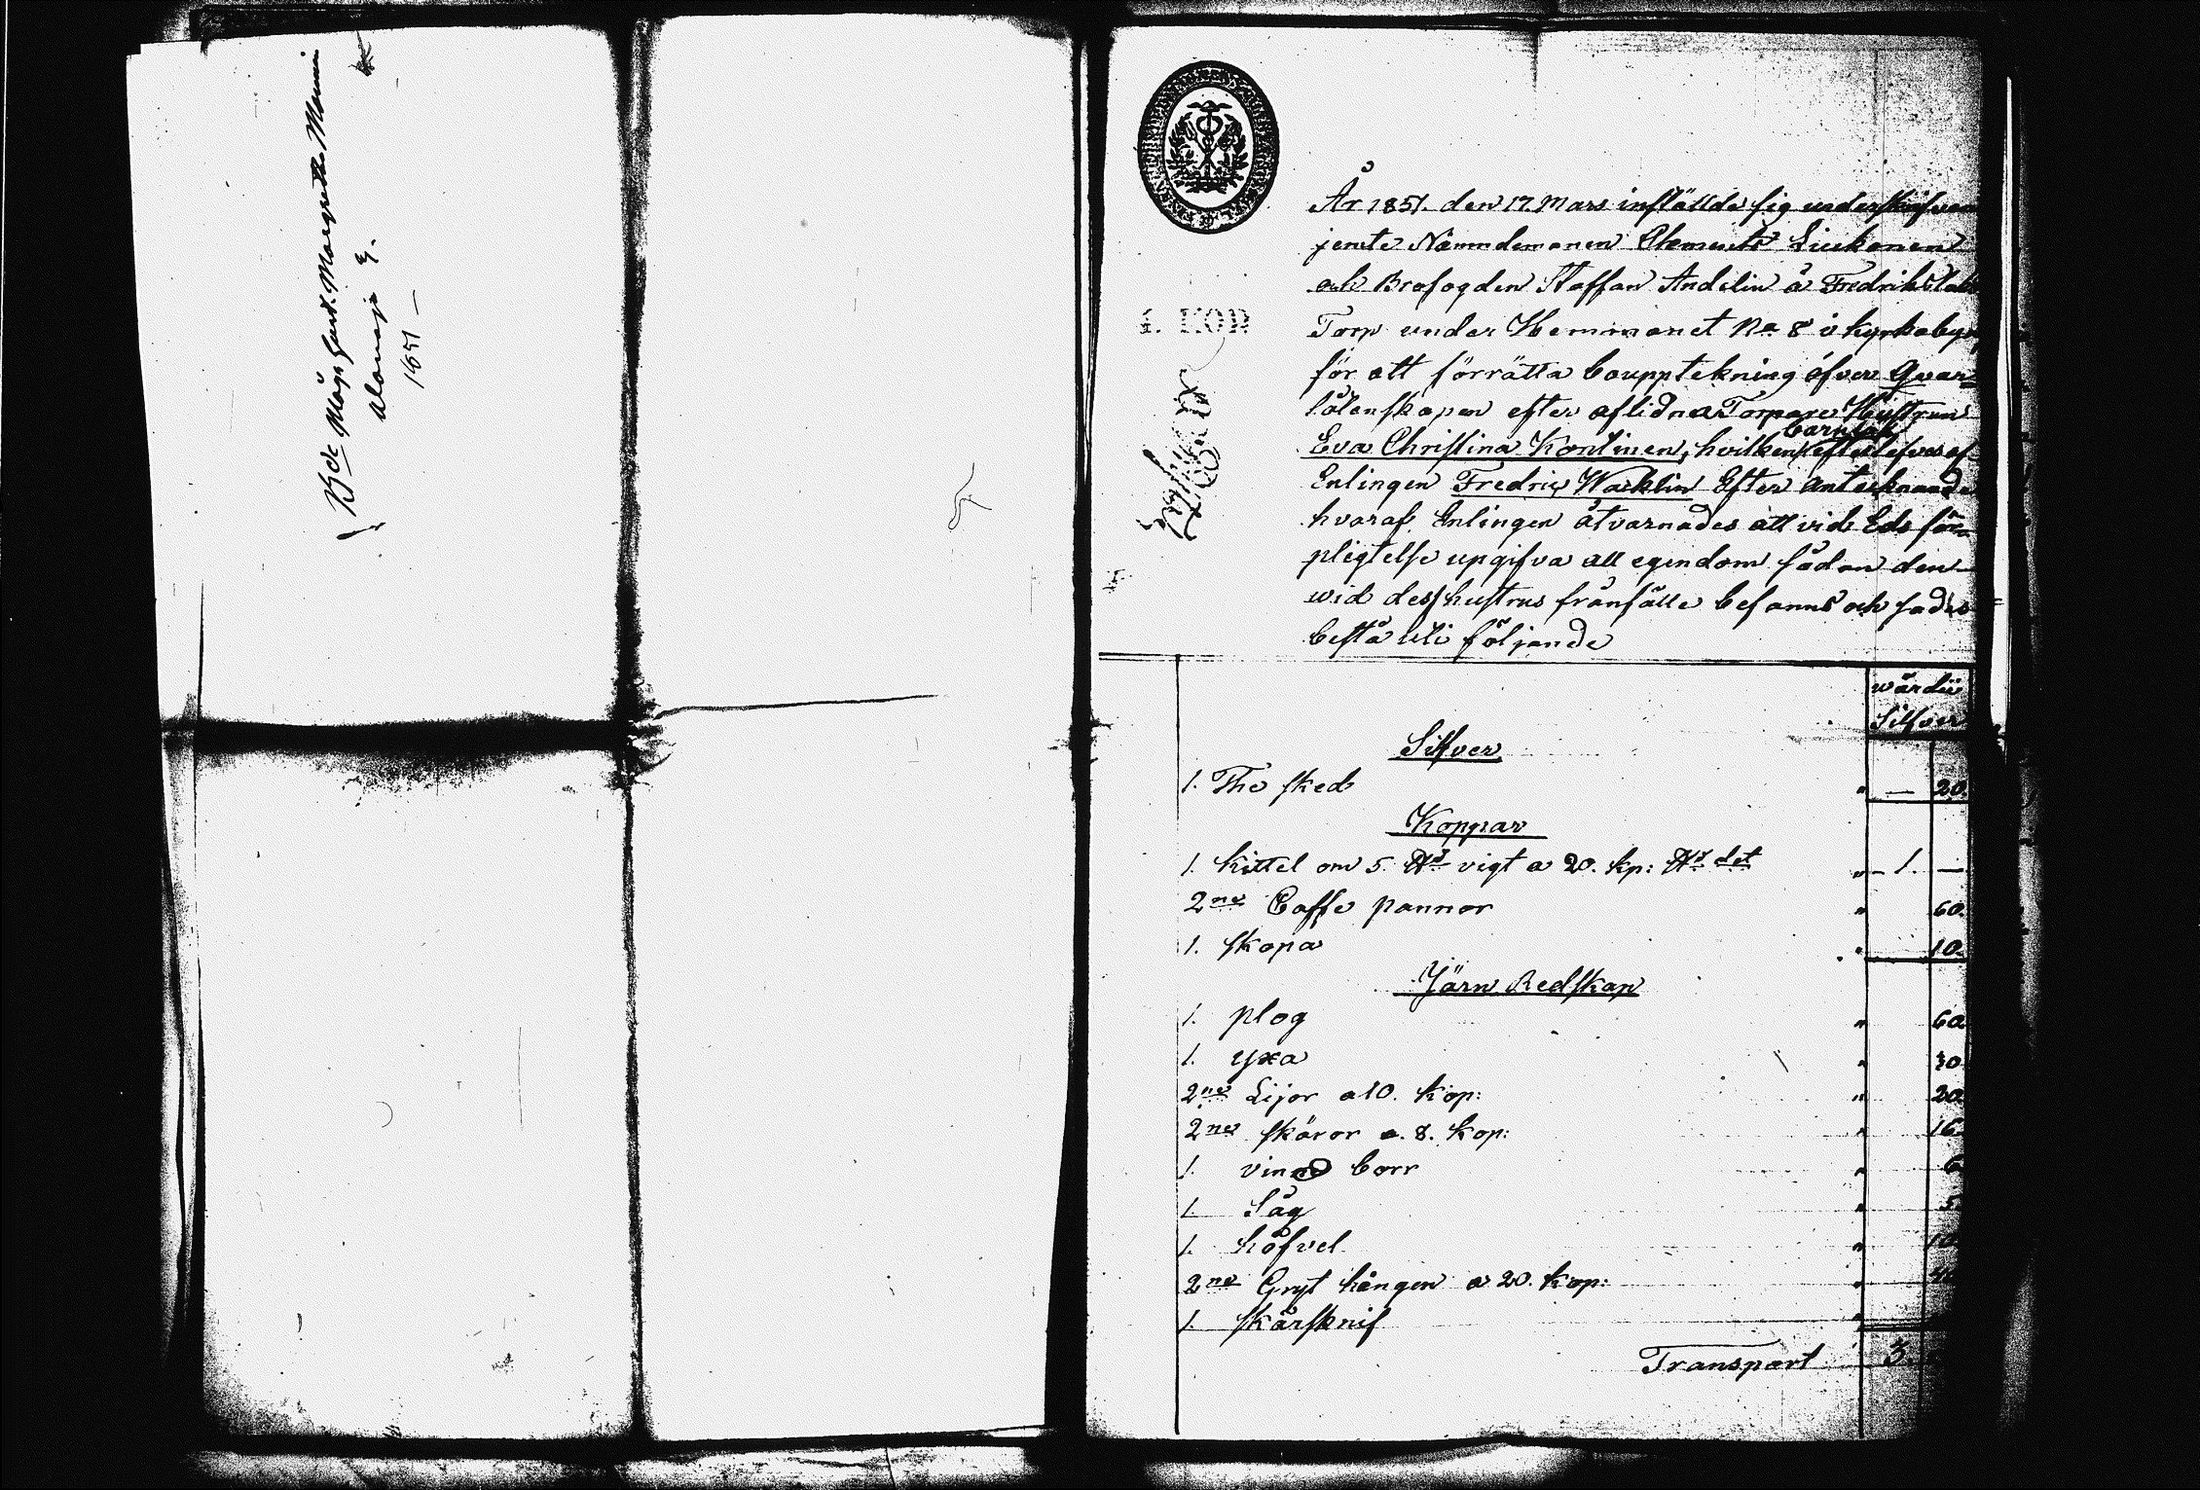 Bde Måg Gust. Margreta Mannin
Alamaji g.
1851 —
4. KOP.
År 1851. den 17. Mars inställde sig undertecknad
jemte Nämndemannen Clemens Liukonen
och Brofogden Staffan Andelin å Fredrikslab
Torp under Hemmanet No 8 i kyrkobyn
för att förrätta bouppteckning öfver Qvar-
låtenskapen efter aflidna Torpare Hustrun
Eva Christina Kontinen, hvilken barnlös efterlefves af
Enlingen Fredric Wacklin Efter antecknande
hvaraf Enlingen åtvarnades att vid Eds för-
pligtelse upgifva all egendom sådan den
wid dess hustrus frånfälle befanns och sades
bestå uti följande
wärdie
Silfver
Silfver
1. The sked " — 20.
Koppar
1. kittel om 5 ℔d vigt a 20. kp: ℔d det " 1. —
2ne Caffe pannor " 60.
1. skopa " 10.
Järn Redskap
1. plog " 60
1. yxa " 30
2ne Lijor a 10. kop: " 20
2ne skäror a. 8. kop: " 16
1. vind borr " 6
1. Såg " 5
1. höfvel " 10
2ne Gryt hängen a 20. kop: " 40
1. skärsknif "
Transport 3.